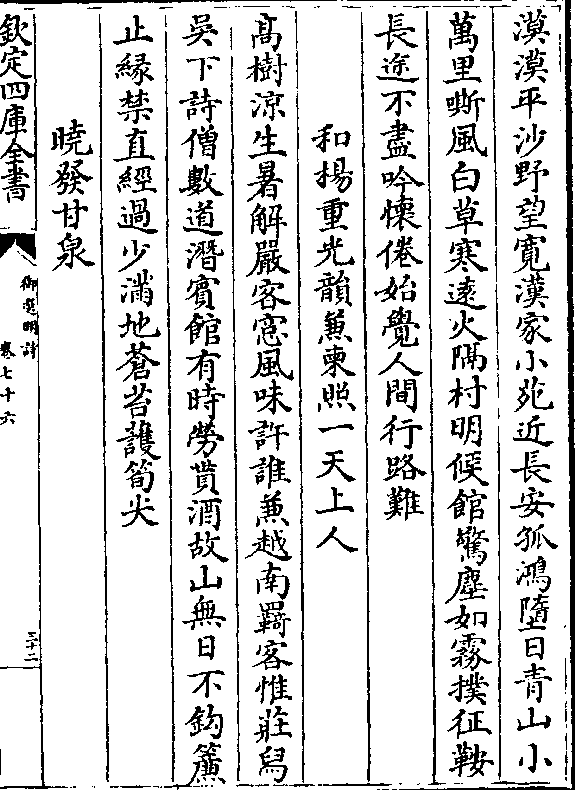 漠漠平沙野望寛漢家小苑近長安孤鴻墮日青山小
萬里嘶風白草寒逺火隔村明候館驚塵如霧撲征鞍
長途不盡吟懷倦始覺人間行路難
和楊重光韻兼柬照一天上人
髙樹涼生暑解嚴客窓風味許誰兼越南羇客惟莊舄
吳下詩僧數道潛賓館有時勞貰酒故山無日不鈎簾
止縁禁直經過少滿地蒼苔護筍尖
曉發甘泉
欽定四庫全書
御選明詩
卷七十六
三十二